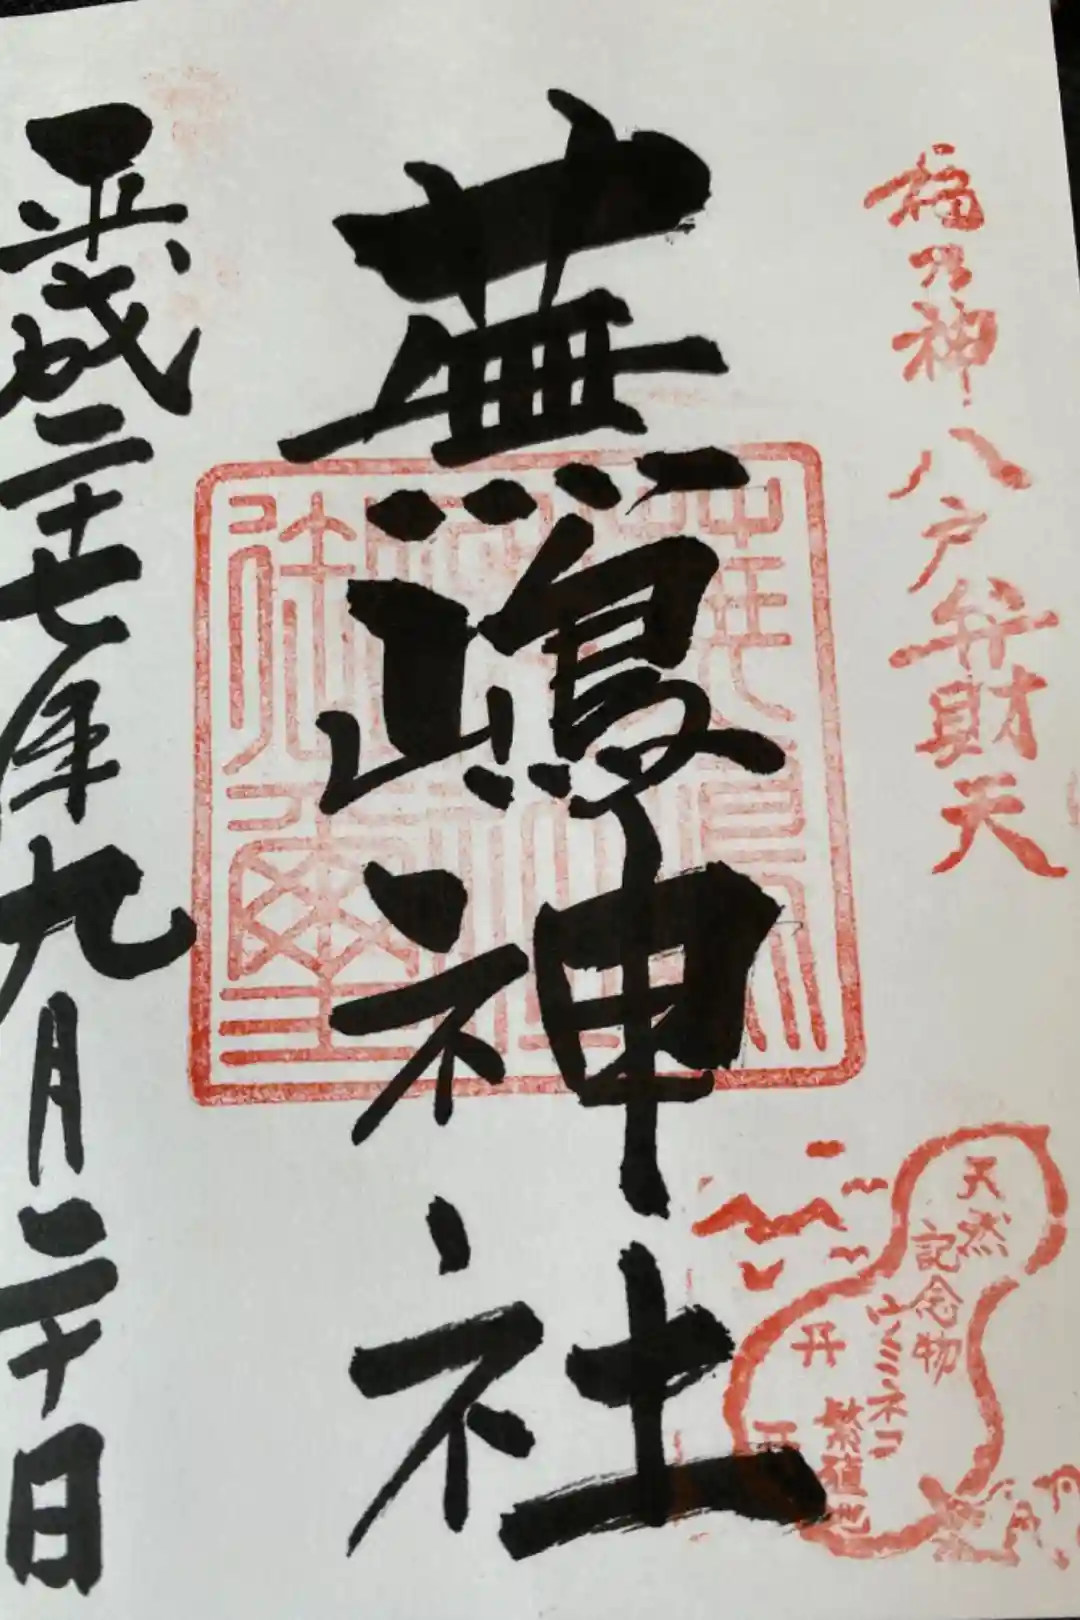 福乃神 八戸弁財天
蕪嶋神社
平成二十七年九月二十日
天然
記念物
ウミネコ
繁殖地